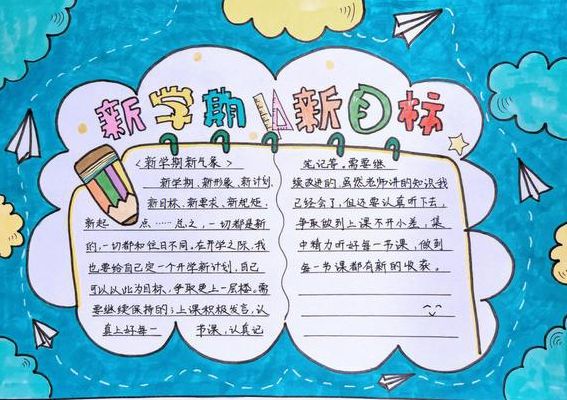 新学期新目标
<新学期新气象>
新学期、新形象、新计划、
新目标、新要求、新规矩、
新起点……总之，一切都是新
的，一切都和往日不同，在开学之际，我
也要给自己定一个开学新计划，自己
可以以此为目标，争取更上一层楼。需
要继续保持的：上课积极发言，认
真上好每一节课，认真记
笔记等。需要继
续改进的，虽然老师讲的知识我
已经会了，但还要认真听下去，
争取做到上课不开小差，集
中精力听好每一节课，做到
每一节课都有新的收获。